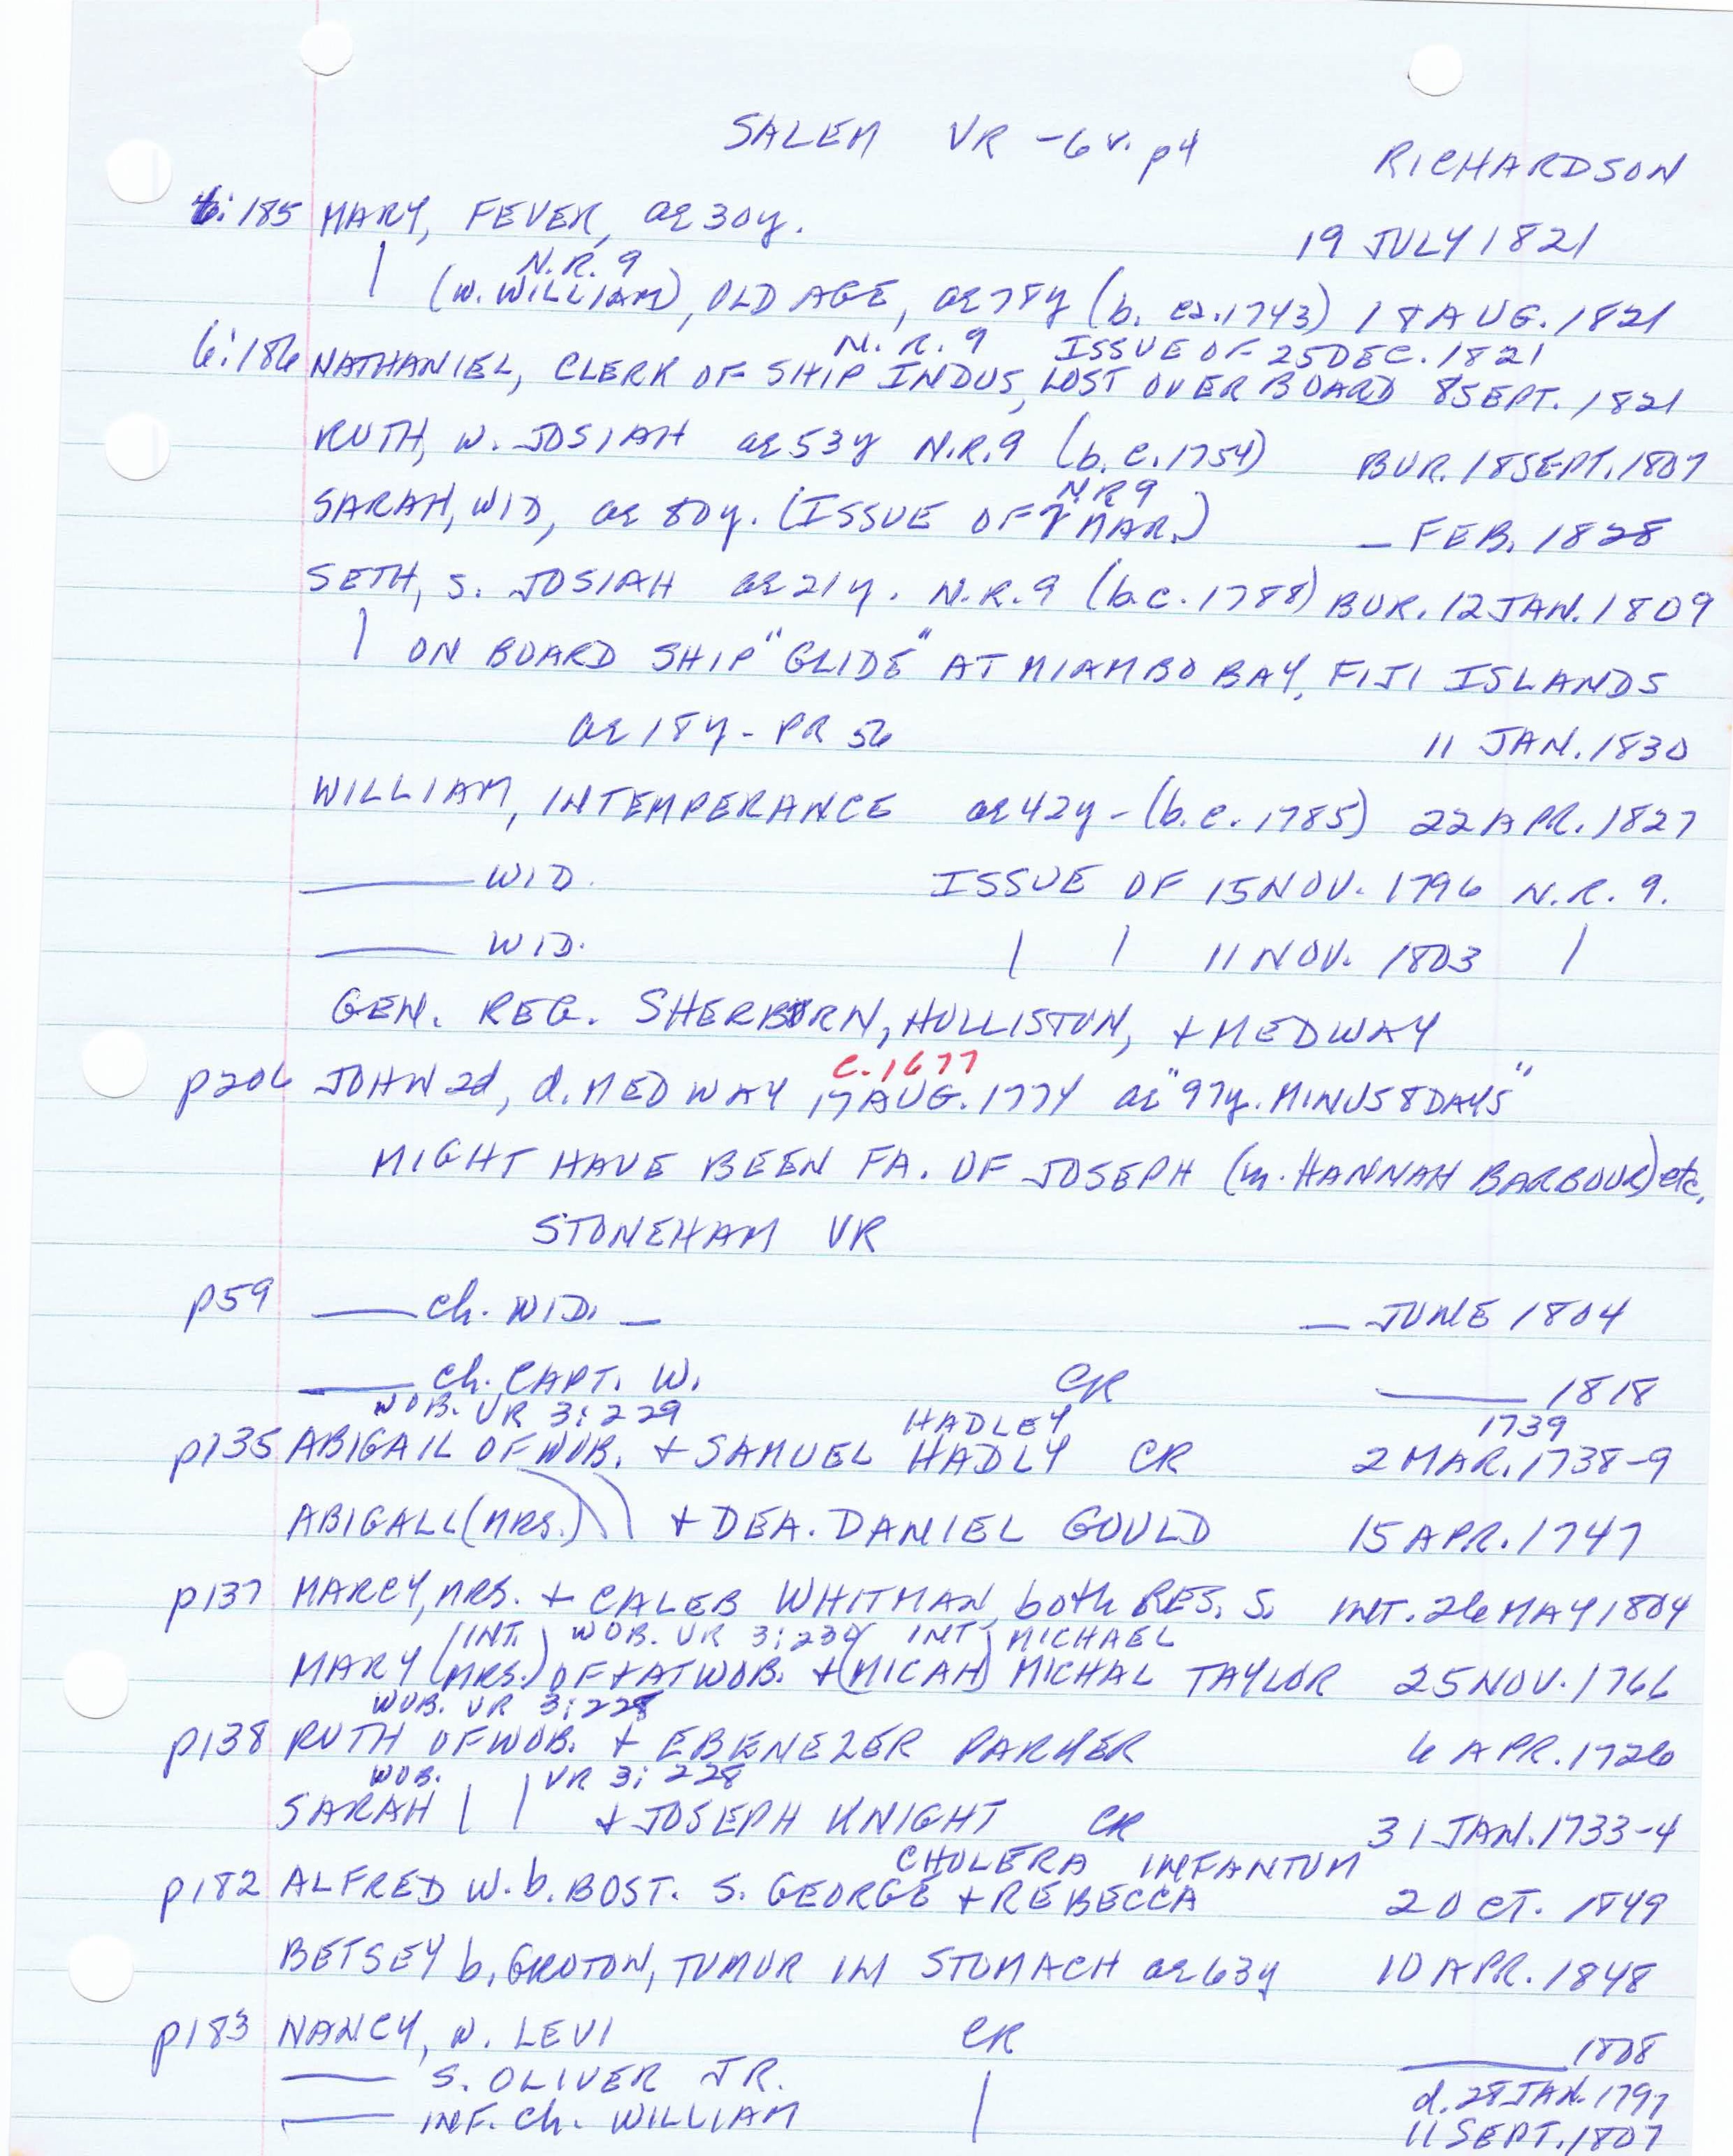 SALEM VR - 6 v. p4 RICHARDSON
6:185 MARY, FEVER, ae 30y. 19 JULY 1821
N.R. 9
| (W. WILLIAM), OLD AGE, ae 78y (b. ca. 1743) 18 AUG. 1821
N.R. 9 ISSUE OF 25 DEC. 1821
6:186 NATHANIEL, CLERK OF SHIP INDUS, LOST OVER BOARD 8 SEPT. 1821
RUTH, W. JOSIAH ae 53y N.R.9 (b.c. 1754) BUR. 18 SEPT. 1807
NR9
SARAH, WID, ae 80y. (ISSUE OF MAR.) — FEB. 1828
SETH, S. JOSIAH ae 21y. N.R.9 (b.c. 1788) BUR. 12 JAN. 1809
| ON BOARD SHIP "GLIDE" AT MIAMBO BAY, FIJI ISLANDS
ae 18y - PR 56 11 JAN. 1830
WILLIAM, INTEMPERANCE ae 42y - (b.c. 1785) 22 APR. 1827
—— WID. ISSUE OF 15 NOV. 1796 N.R. 9.
—— WID. | | 11 NOV. 1803 |
GEN. REG. SHERBORN, HOLLISTON, + MEDWAY
c. 1677
p206 JOHN 2d, d. MEDWAY 17 AUG. 1774 ae "97y. MINUS 8 DAYS"
MIGHT HAVE BEEN FA. OF JOSEPH (m. HANNAH BARBOUR) etc.
STONEHAM VR
p59 —— Ch. WID. — — JUNE 1804
—— Ch. CAPT. W. CR —— 1818
WOB. VR 3:229 HADLEY 1739
p135 ABIGAIL OF WOB. + SAMUEL HADLY CR 2 MAR. 1738-9
ABIGALL (MRS.) + DEA. DANIEL GOULD 15 APR. 1747
p137 MARCY, MRS. + CALEB WHITMAN, both RES. S. INT. 26 MAY 1804
(INT.) WOB. VR 3:230 INT) MICHAEL
MARY (MRS.) OF + AT WOB. + (MICAH) MICHAL TAYLOR 25 NOV. 1766
WOB. VR 3:228
p138 RUTH OF WOB. + EBENEZER PARKER 6 APR. 1726
WOB. VR 3:228
SARAH | | + JOSEPH KNIGHT CR 31 JAN. 1733-4
CHOLERA INFANTUM
p182 ALFRED W. b. BOST. S. GEORGE + REBECCA 2 OCT. 1849
BETSEY b. GROTON, TUMOR IN STOMACH ae 63y 10 APR. 1848
p183 NANCY, W. LEVI CR —— 1808
—— S. OLIVER JR. | d. 28 JAN. 1797
—— INF. Ch. WILLIAM 11 SEPT. 1807